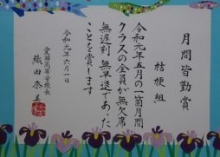 月間皆勤賞
桔梗組
令和元年五月の一箇月間
クラスの全員が無欠席
無遅刻 無早退であった
ことを賞します
令和元年六月一日
織田奈美